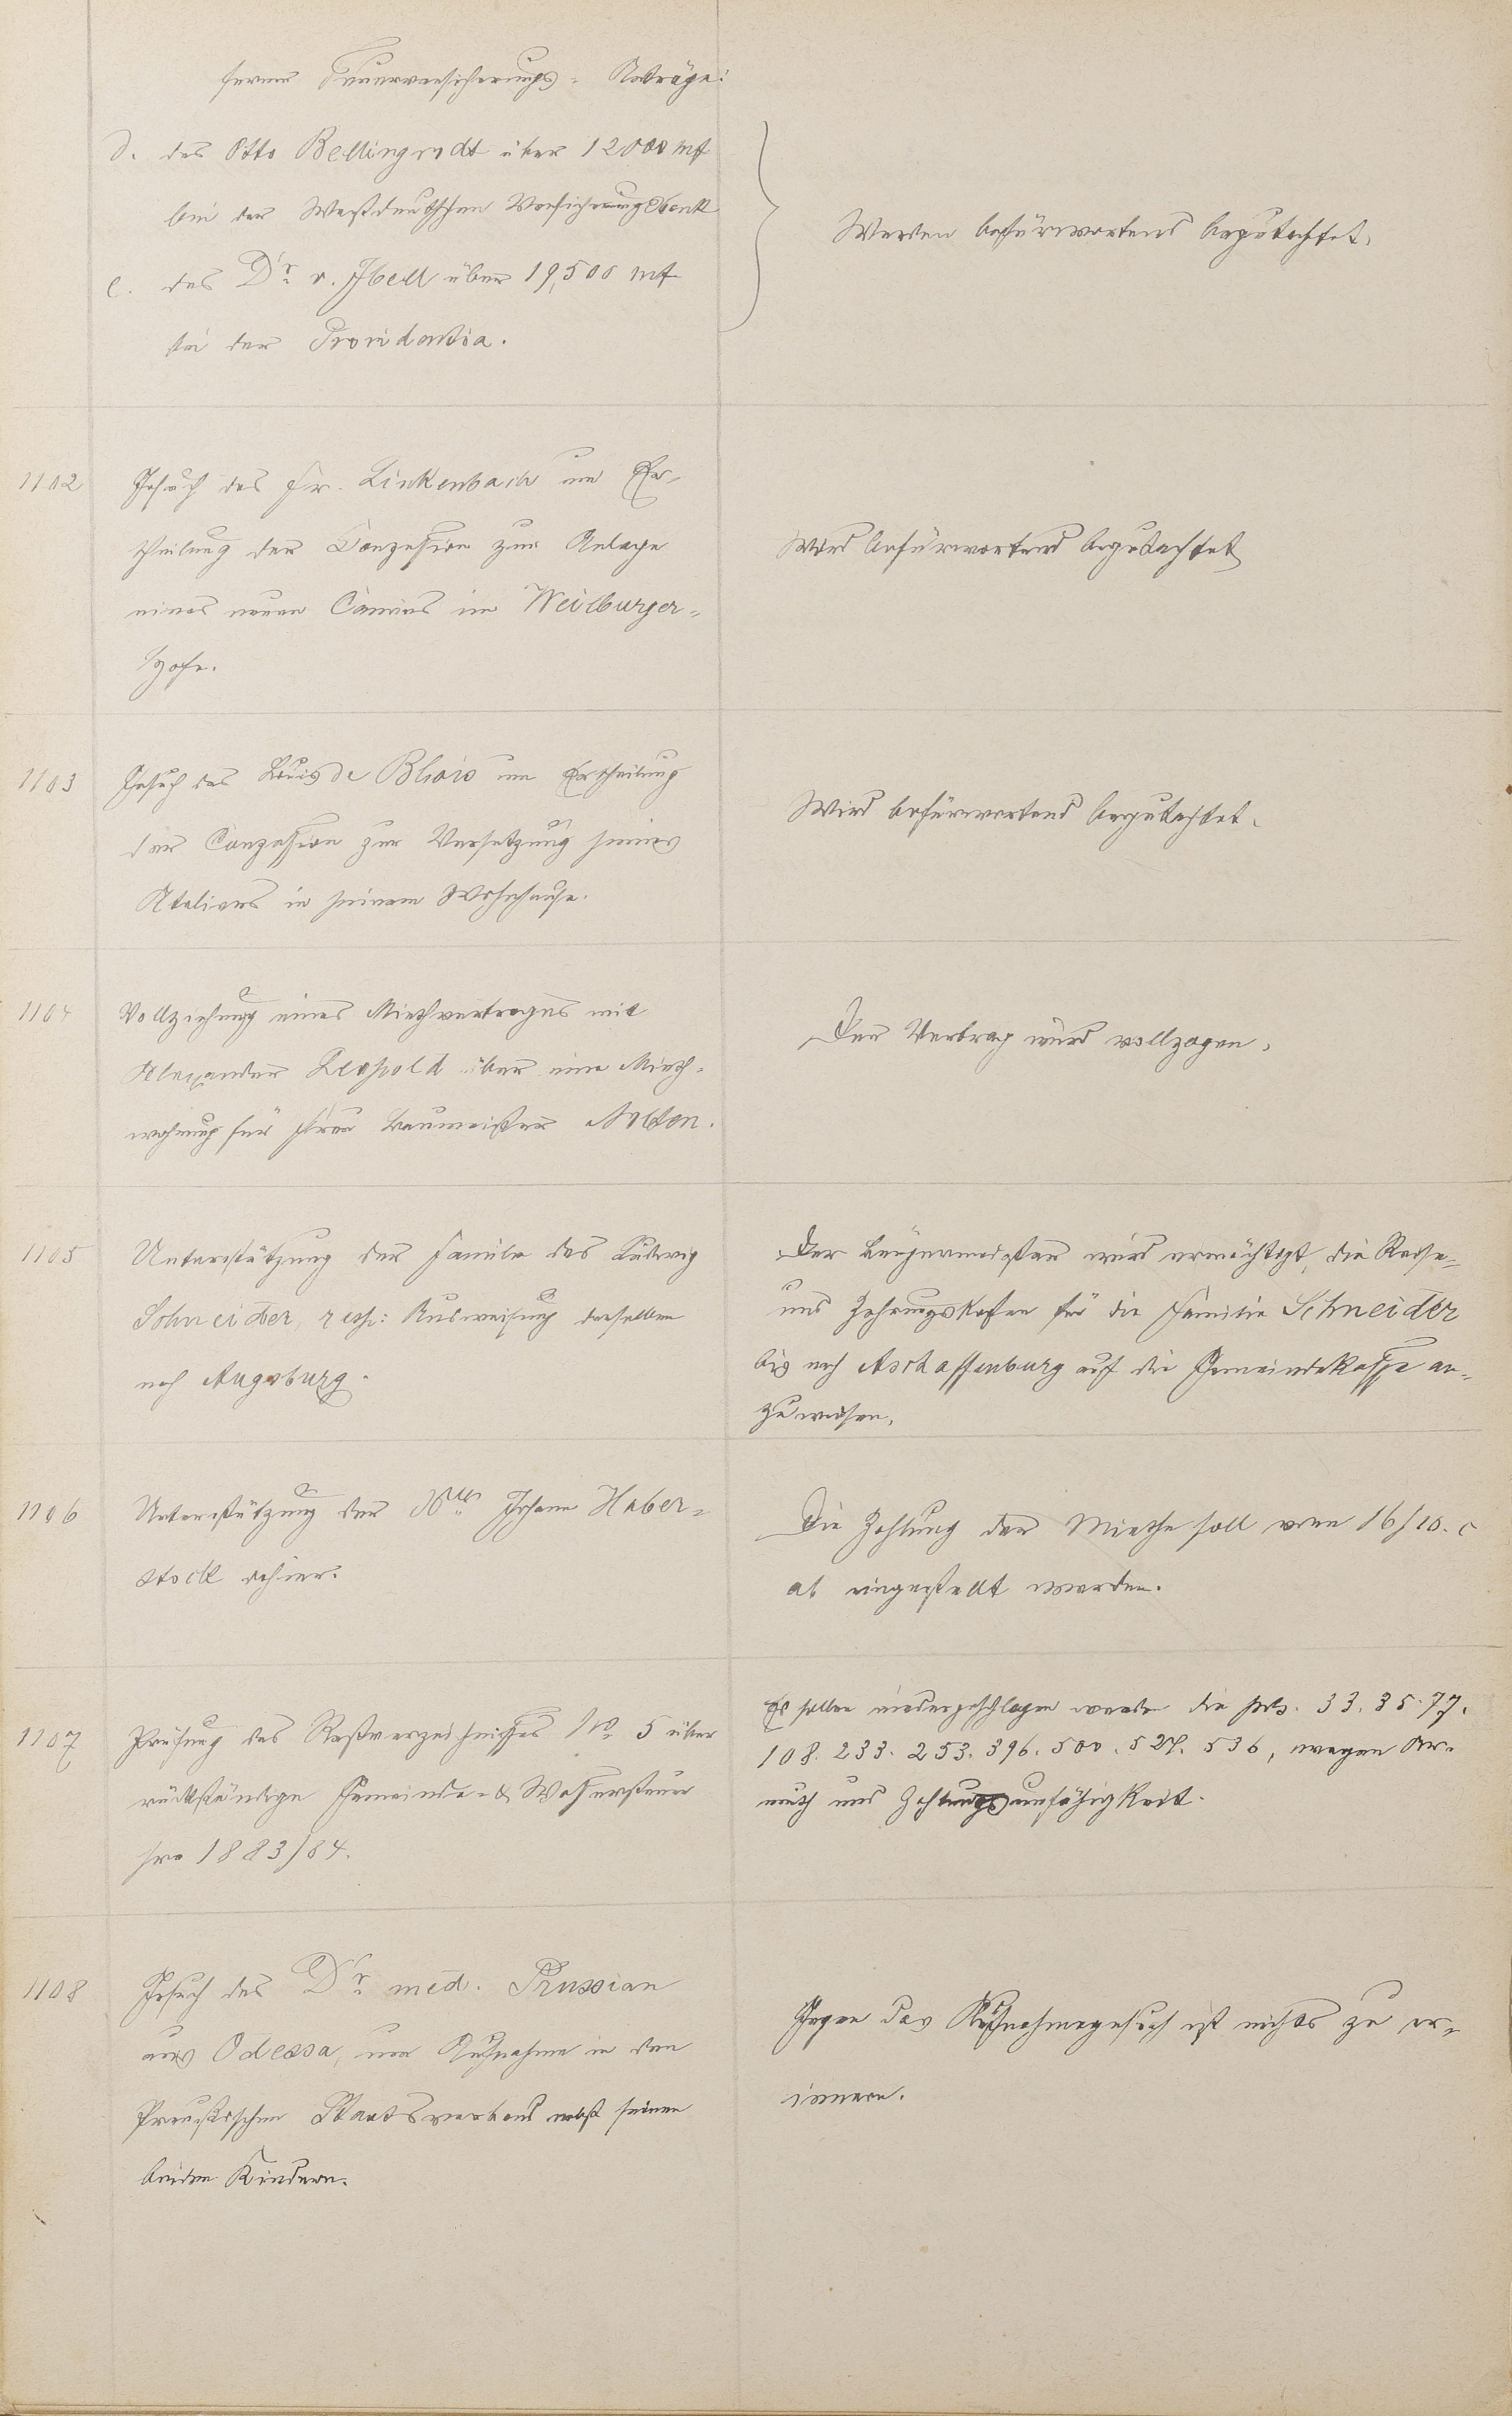 ferner Feuerversicherungs- Anträge:
d. des Otto Bellingrodt über 12000 mk
bei der Westdeutschen Versicherungsbank
e. des Dr. v. Ibell über 19,500 mk
bei der Providentia.
Werden befürwortend begutachtet.
1102 Gesuch des Fr. Linkenbach um Er-
theilung der Conzession zur Anlage
eines neuen Camins im Weilburger-
Hofe.
Wird befürwortend begutachtet
1103 Gesuch des Louis de Blois um Ertheilung
der Conzession zur Versetzung seines
Ateliers in seinem Wohnhause.
Wird befürwortend begutachtet.
1104 Vollziehung eines Miethvertrages mit
Alexander Leopold über eine Mieth-
wohnung für Frau Baumeister Nolten.
Der Vertrag wird vollzogen.
1105 Unterstützung der Familie des Ludwig
Schneider, resp: Ausweisung derselben
nach Augsburg.
Der Bürgermeister wird ermächtigt, die Reise-
und Zehrungskosten für die Familie Schneider
bis nach Aschaffenburg auf die Gemeindekasse an-
zuweisen.
1106 Unterstützung der Johann Haber-
stock dahier.
Die Zahlung der Miethe soll vom 16/10. c
ab eingestellt werden.
1107 Prüfung des Restverzeichnisses No. 5 über
rückständige Gemeinde- & Wassersteuer
pro 1883/84.
Es sollen niedergeschlagen werden die pos. 33. 35. 77.
108. 233. 253. 396. 500. 527. 536, wegen Ar-
muth und Zahlungsunfähigkeit.
1108 Gesuch des Dr. med. Prussian
aus Odessa, um Aufnahme in den
Preußischen Staatsverband nebst seinen
beiden Kindern.
Gegen das Aufnahmegesuch ist nichts zu er-
innern.